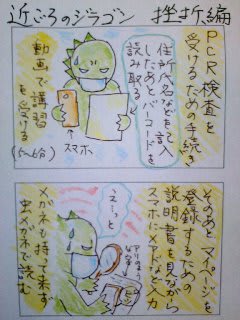 近ごろのジラゴン 挫折編
PCR検査を
受けるための手続き
住所氏名などを記入
したあとバーコードを
読み取る
スマホ
動画で講習
を受ける
(5〜6分)
そのあとマイページを
登録するための
説明書を見ながら
スマホにコードなど入力
ええっと
アリのような
な字
メガネも持って来ず
虫メガネで読む